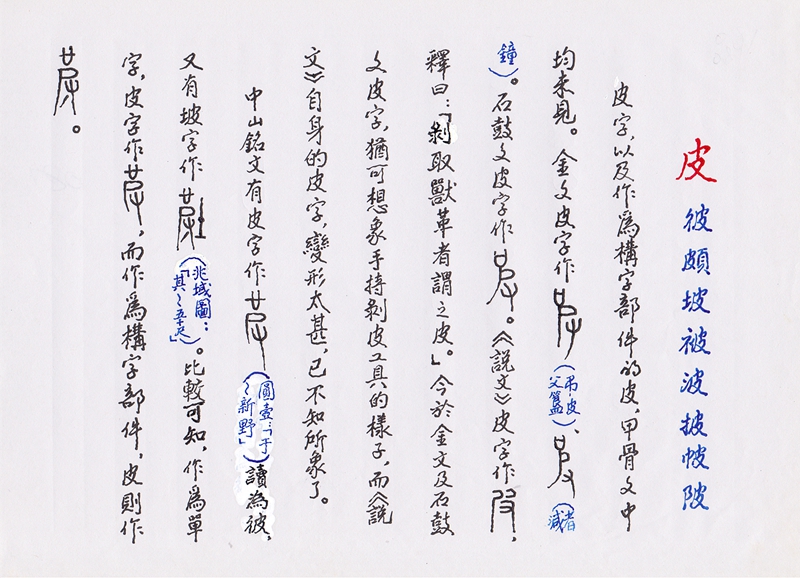 皮 彼頗坡被波披帔陂
皮字,以及作為構字部件的皮,甲骨文中
均未見。金文皮字作(弔皮父簋)、(者減
鐘)。石鼓文皮字作。《說文》皮字作,
釋曰:「剝取獸革者謂之皮。」今於金文及石鼓
文皮字,猶可想象手持剝皮工具的樣子,而《說
文》自身的皮字,變形太甚,已不知所象了。
中山銘文有皮字作(圓壺:于新野」)讀為彼,
又有坡字作(兆域圖:「其坡五十尺」)。比較可知,作為單
字,皮字作,而作為構字部件,皮則作
。